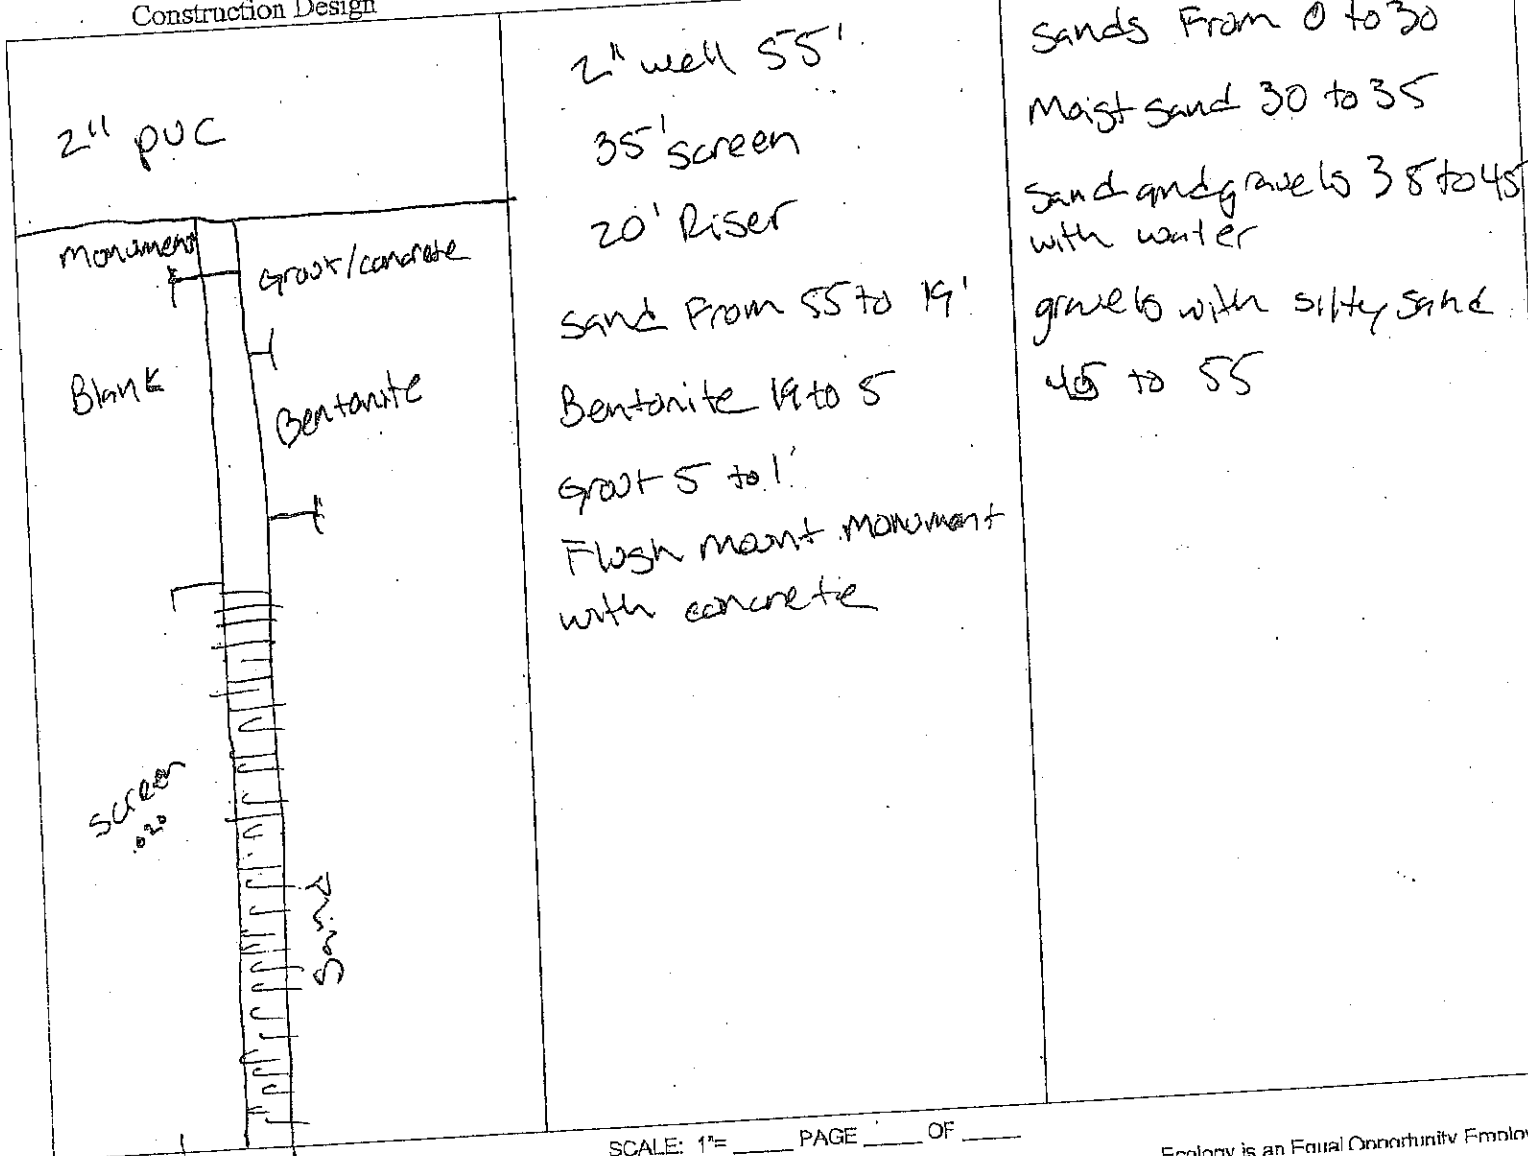 Construction Design
2" PVC
Monument
Grout/concrete
Blank
Bentonite
screen
.020
Sand
2" well 55'
35' screen
20' Riser
sand From 55 to 19'
Bentonite 19 to 5
Grout 5 to 1'
Flush mount monument
with concrete
sands From 0 to 30
Moist sand 30 to 35
sand and gravels 35 to 45
with water
gravels with silty sand
45 to 55
SCALE: 1"= _____ PAGE _____ OF _____
Ecology is an Equal Opportunity Employ